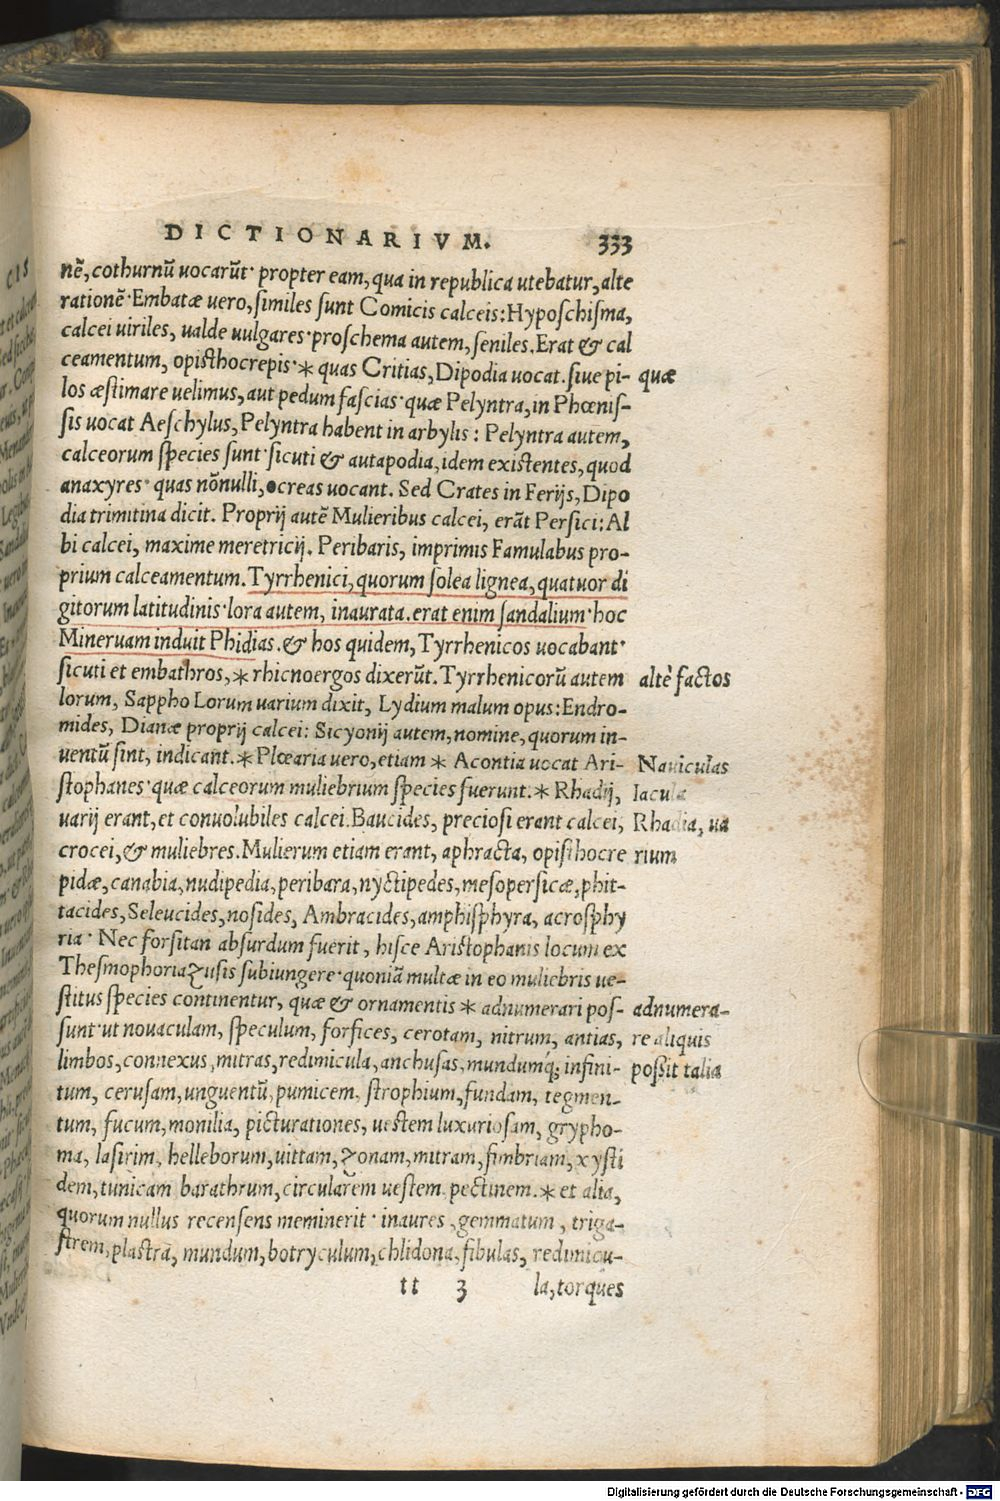 DICTIONARIVM. 333
nē, cothurnū uocarūt· propter eam, qua in republica utebatur, alte
rationē·Embatæ uero, similes sunt Comicis calceis: Hyposchisma,
calcei uiriles, ualde uulgares·proschema autem, seniles. Erat & cal
ceamentum, opisthocrepis·* quas Critias, Dipodia uocat. siue pi- quæ
los æstimare uelimus, aut pedum fascias·quæ Pelyntra, in Phœnis-
sis uocat Aeschylus, Pelyntra habent in arbylis: Pelyntra autem,
calceorum species sunt·sicuti & autapodia, idem existentes, quod
anaxyres· quas nōnulli, ocreas uocant. Sed Crates in Ferijs, Dipo
dia trimitina dicit. Proprij autē Mulieribus calcei, erāt Persici: Al
bi calcei, maxime meretricij. Peribaris, imprimis Famulabus pro-
prium calceamentum. Tyrrhenici, quorum solea lignea, quatuor di
gitorum latitudinis·lora autem, inaurata. erat enim sandalium·hoc
Mineruam induit Phidias. & hos quidem, Tyrrhenicos uocabant·
sicuti et embathros, * rhicnoergos dixerūt. Tyrrhenicorū autem altè factos
lorum, Sappho Lorum uarium dixit, Lydium malum opus: Endro-
mides, Dianæ proprij calcei: Sicyonij autem, nomine, quorum in-
uentū sint, indicant. * Plœaria uero, etiam * Acontia uocat Ari- Nauiculas
stophanes·quæ calceorum muliebrium species fuerunt. * Rhadij, Iacula
uarij erant, et conuolubiles calcei. Baucides, preciosi erant calcei, Rhadia, ua
crocei, & muliebres. Mulierum etiam erant, aphracta, opisthocre rium
pidæ, canabia, nudipedia, peribara, nyctipedes, mesopersicæ, phit-
tacides, Seleucides, nosides, Ambracides, amphisphyra, acrosphy
ria· Nec forsitan absurdum fuerit, hisce Aristophanis locum ex
Thesmophoriazusis subiungere·quoniā multæ in eo muliebris ue-
stitus species continentur, quæ & ornamentis * adnumerari pos- adnumera-
sunt·ut nouaculam, speculum, forfices, cerotam, nitrum, antias, re aliquis
limbos, connexus, mitras, redimicula, anchusas, mundumq́; infini- possit talia
tum, cerusam, unguentū, pumicem, strophium, fundam, tegmen-
tum, fucum, monilia, picturationes, uestem luxuriosam, grypho-
ma, lasirim, helleborum, uittam, zonam, mitram, fimbriam, xysti
dem, tunicam barathrum, circularem uestem pectinem. * et alia,
quorum nullus recensens meminerit· inaures, gemmatum, triga-
strem, plastra, mundum, botryculum, chlidona, fibulas, redimicu-
tt 3 la, torques
Digitalisierung gefördert durch die Deutsche Forschungsgemeinschaft - DFG